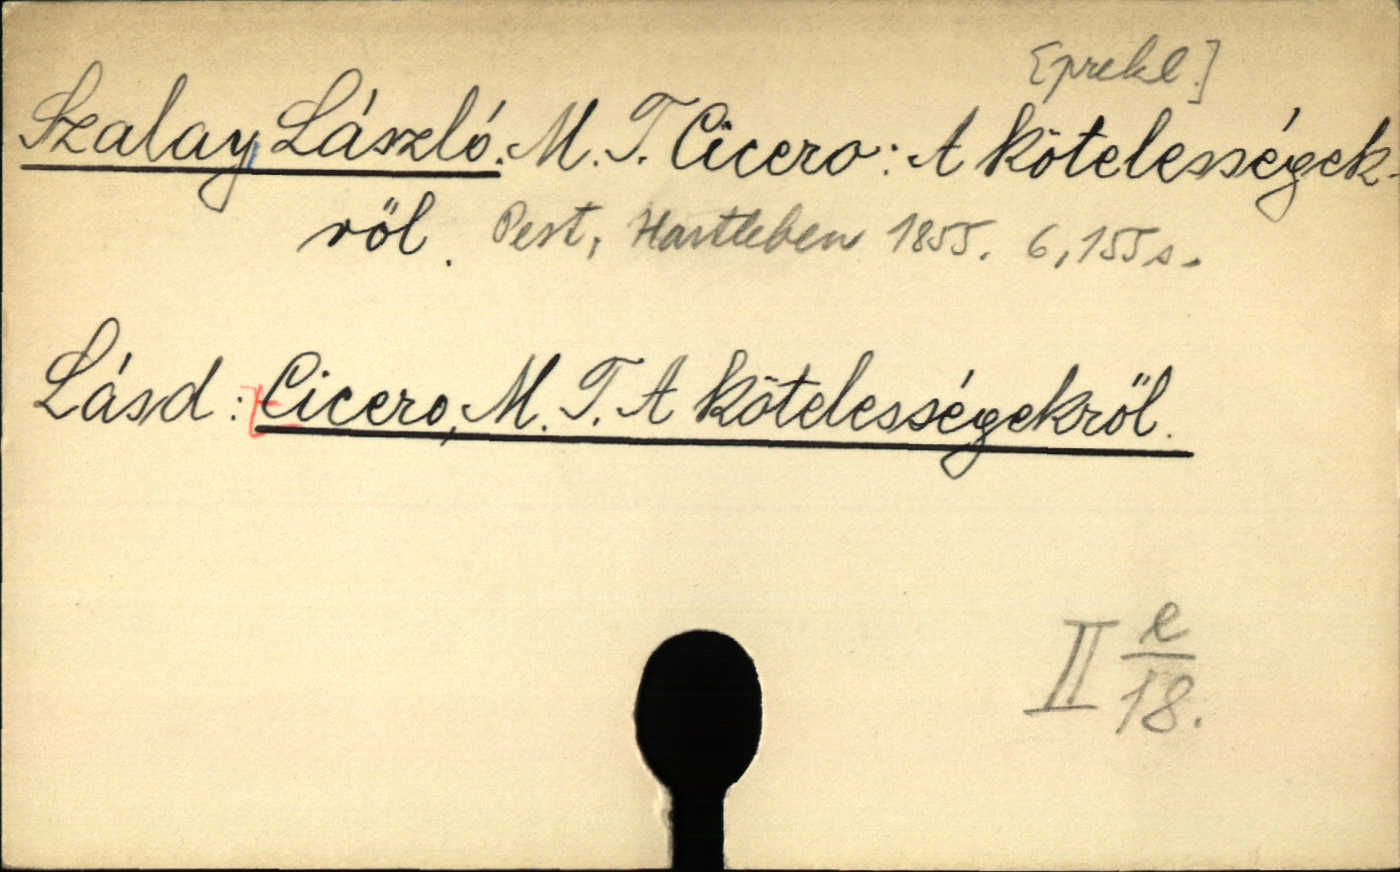 [prekl.]
Szalay, László. M. T. Cicero: A kötelességek-
ről. Pest, Hartleben 1855. 6, 155 s.
Lásd: [Cicero, M. T. A kötelességekről.
II e/18.